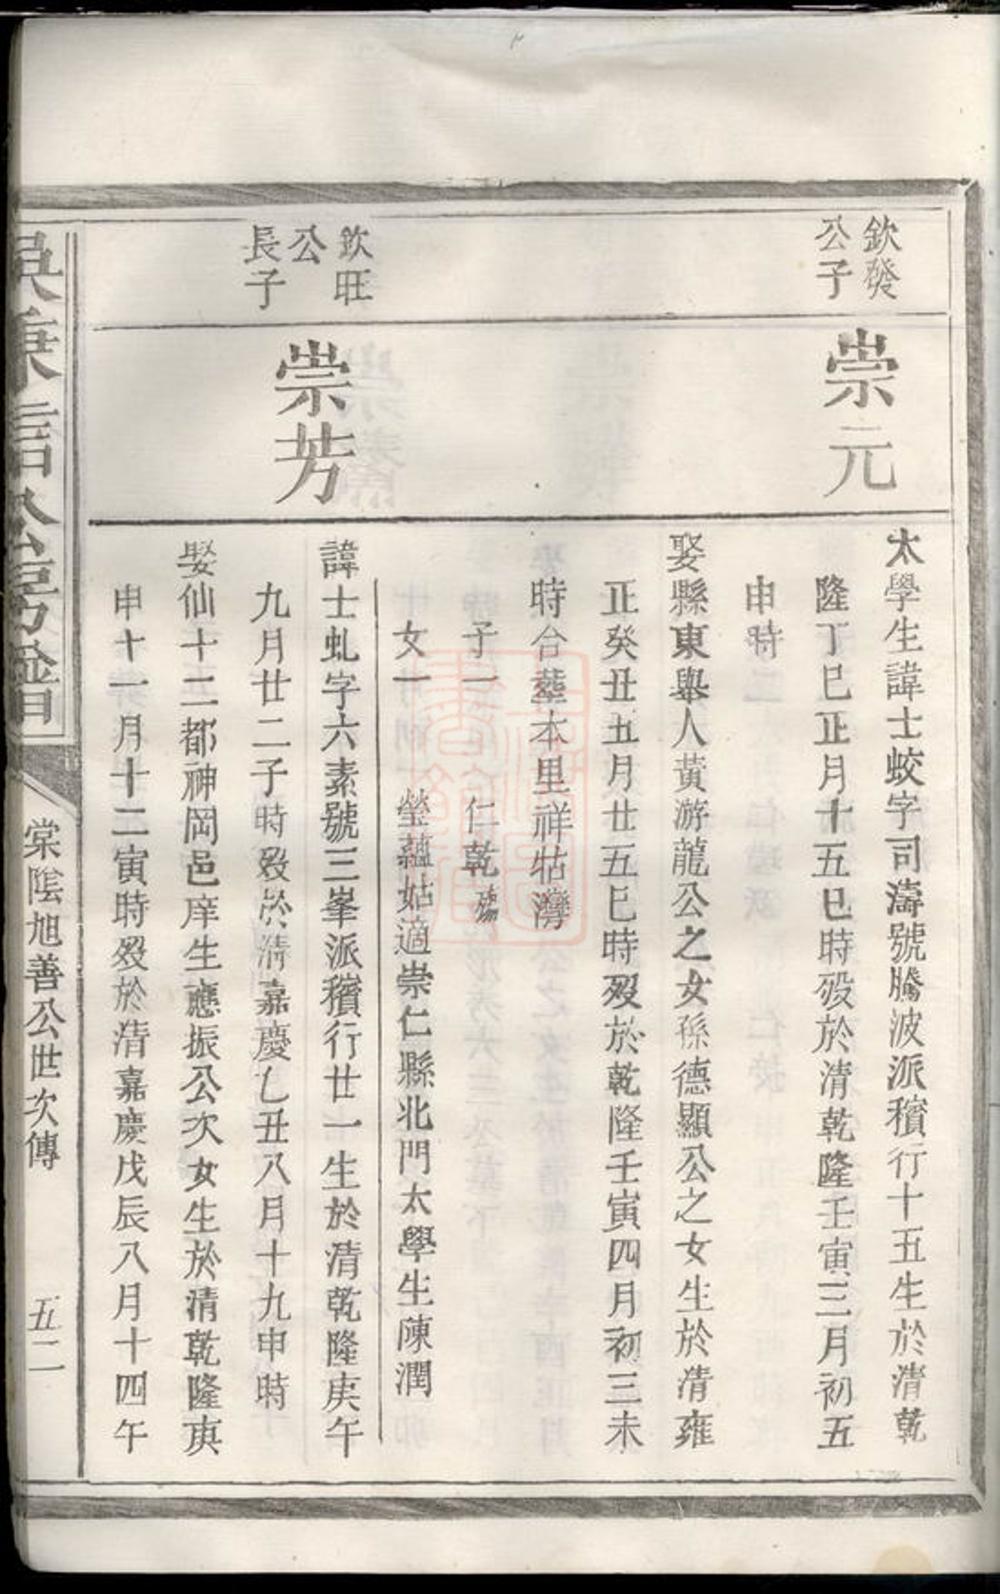 欽發
公子
崇元
太學生諱士蛟字司濤號騰波派穧行十五生於清乾
隆丁巳正月十五巳時歿於清乾隆壬寅三月初五
申時
娶縣東舉人黃游龍公之女孫德顯公之女生於清雍
正癸丑五月廿五巳時歿於乾隆壬寅四月初三未
時合塟本里祥牯灣
子一 仁乾殤
女一 瑩蘊姑適崇仁縣北門太學生陳潤
欽旺
公
長子
崇芳
諱士虬字六素號三峯派穧行廿一生於清乾隆庚午
九月廿二子時歿於清嘉慶乙丑八月十九申時
娶仙十二都神岡邑庠生應振公次女生於清乾隆庚
申十一月十二寅時歿於清嘉慶戊辰八月十四午
棠陰旭善公世次傳
五二